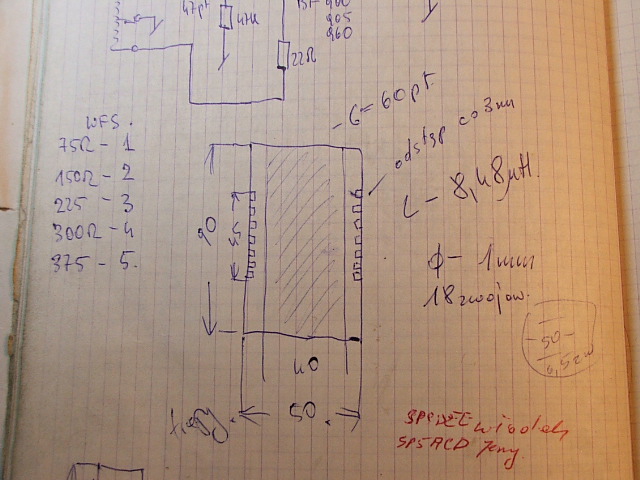 47pf
47k
BF-900
905
960
22Ω
WFS.
75Ω - 1
150Ω - 2
225 - 3
300Ω - 4
375 - 5.
- C = 60pf.
odstęp co 3mm
L - 8,48µH.
ϕ - 1mm
18 zwojów.
90
40
50
- 50 -
SP5ACD Jerzy.